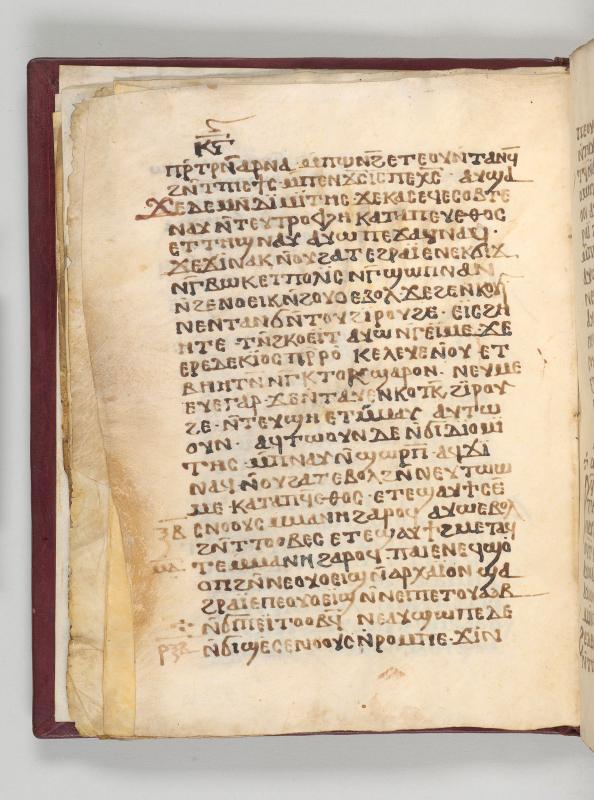 ⲕⲋ
ⲡⲣ̄ⲧⲣⲛ̄ⲁⲣⲛⲁ ⲙⲡⲱⲛϩ ⲉⲧⲉⲟⲩⲛⲧⲁⲛϥ
ϩⲛ̄ⲧⲡⲓⲥϯⲥ ⲙⲡⲉⲛϫⲥ ⲓⲥ ⲡⲉⲭⲥ· ⲁⲩϣⲁ
ϫⲉ ⲇⲉ ⲙⲛ̄ ⲇⲓⲙⲓⲧⲏⲥ ϫⲉⲕⲁⲥ ⲉϥⲉⲥⲟⲃⲧⲉ
ⲛⲁⲩ ⲛ̄ⲧⲉⲩⲧⲣⲟⲫⲏ ⲕⲁⲧⲁ ⲡⲉⲩⲉⲑⲟⲥ
ⲉⲧⲧⲏϣ ⲛⲁⲩ ⲁⲩⲱ ⲡⲉϫⲁⲩ ⲛⲁϥ·
ϫⲉ ϫⲓ ⲛⲁⲕ ⲛ̄ⲟⲩϩⲁⲧ ⲉϩⲣⲁⲓ ⲉⲛⲉⲕϭⲓϫ
ⲛⲅ̄ⲃⲱⲕ ⲉⲧⲡⲟⲗⲓⲥ ⲛⲅ̄ϣⲱⲡ ⲛⲁⲛ
ⲛ̄ϩⲉⲛⲟⲉⲓⲕ ⲛ̄ϩⲟⲩⲟ ⲉⲃⲟⲗ ϫⲉ ϩⲉⲛⲕⲟⲩⲓ
ⲛⲉⲛⲧⲁⲛϭⲛ̄ⲧⲟⲩ ϩⲓⲣⲟⲩϩⲉ· ⲉⲓⲥϩⲏ
ⲏⲧⲉ ⲧⲛ̄ϩⲕⲟⲉⲓⲧ ⲁⲩⲱ ⲛⲅ̄ⲉⲓⲙⲉ ϫⲉ
ⲉⲣⲉⲇⲉⲕⲓⲟⲥ ⲡⲣ̄ⲣⲟ ⲕⲉⲗⲉⲩⲉ ⲛ̄ⲟⲩ ⲉⲧ
ⲃⲏⲏⲧⲛ ⲛⲅ̄ⲕⲧⲟⲕ ϣⲁⲣⲟⲛ· ⲛⲉⲩⲙⲉ
ⲉⲩⲉ ⲅⲁⲣ ϫⲉ ⲛ̄ⲧⲁⲩⲉⲛⲕⲟⲧⲕ̄ ϩⲓⲣⲟⲩ
ϩⲉ· ⲛ̄ⲧⲉⲩϣⲏ ⲉⲧⲙ̄ⲙⲁⲩ ⲁⲩⲧⲱ
ⲟⲩⲛ· ⲁϥⲧⲱⲟⲩⲛ ⲇⲉ ⲛ̄ϭⲓ ⲇⲓⲟⲙⲓ
ⲧⲏⲥ ⲙⲡⲛⲁⲩ ⲛ̄ϣⲱⲣⲡ̄· ⲁϥϫⲓ
ⲛⲁϥ ⲛ̄ⲟⲩϩⲁⲧ ⲉⲃⲟⲗ ϩⲛ̄ ⲛⲉⲩⲧⲱⲱ
ⲙⲉ ⲕⲁⲧⲁ ⲡϥⲉⲑⲟⲥ· ⲉⲧⲉϣⲁⲩϯ ⲥⲉ
ⲝⲃ ⲥⲛⲟⲟⲩⲥ ⲙⲙⲁⲛⲏ ϩⲁⲣⲟϥ ⲁⲩϣⲉⲃⲟⲗ
ϩⲛ̄ⲧⲧⲟⲟⲃⲉⲥ ⲉⲧⲉϣⲁⲩϯ ϩⲙⲉⲧⲁϥ
ⲙⲇ ⲧⲉ ⲙⲙⲁⲛⲏ ϩⲁⲣⲟϥ ⲡⲁⲓ ⲉⲛⲉϥϣⲟ
ⲟⲡ ϩⲛ̄ ⲛⲉⲟⲩⲟⲉⲓϣ ⲛ̄ⲁⲣⲭⲁⲓⲟⲛ ϣⲁ
ϩⲣⲁⲓ ⲉⲡⲉⲟⲩⲟⲉⲓϣ ⲛ̄ⲛⲉⲓⲡⲉⲧⲟⲩⲁⲁⲃ
ⲛ̄ϭⲓ ⲡⲉⲓⲧⲟⲟⲃϥ ⲛⲉⲁⲩϣⲱⲡⲉ ⲇⲉ
ⲣⲝⲃ ⲛ̄ϭⲓ ϣⲉⲥⲉⲥⲛⲟⲟⲩⲥ ⲛ̄ⲣⲟⲙⲡⲉ· ϫⲓⲛ